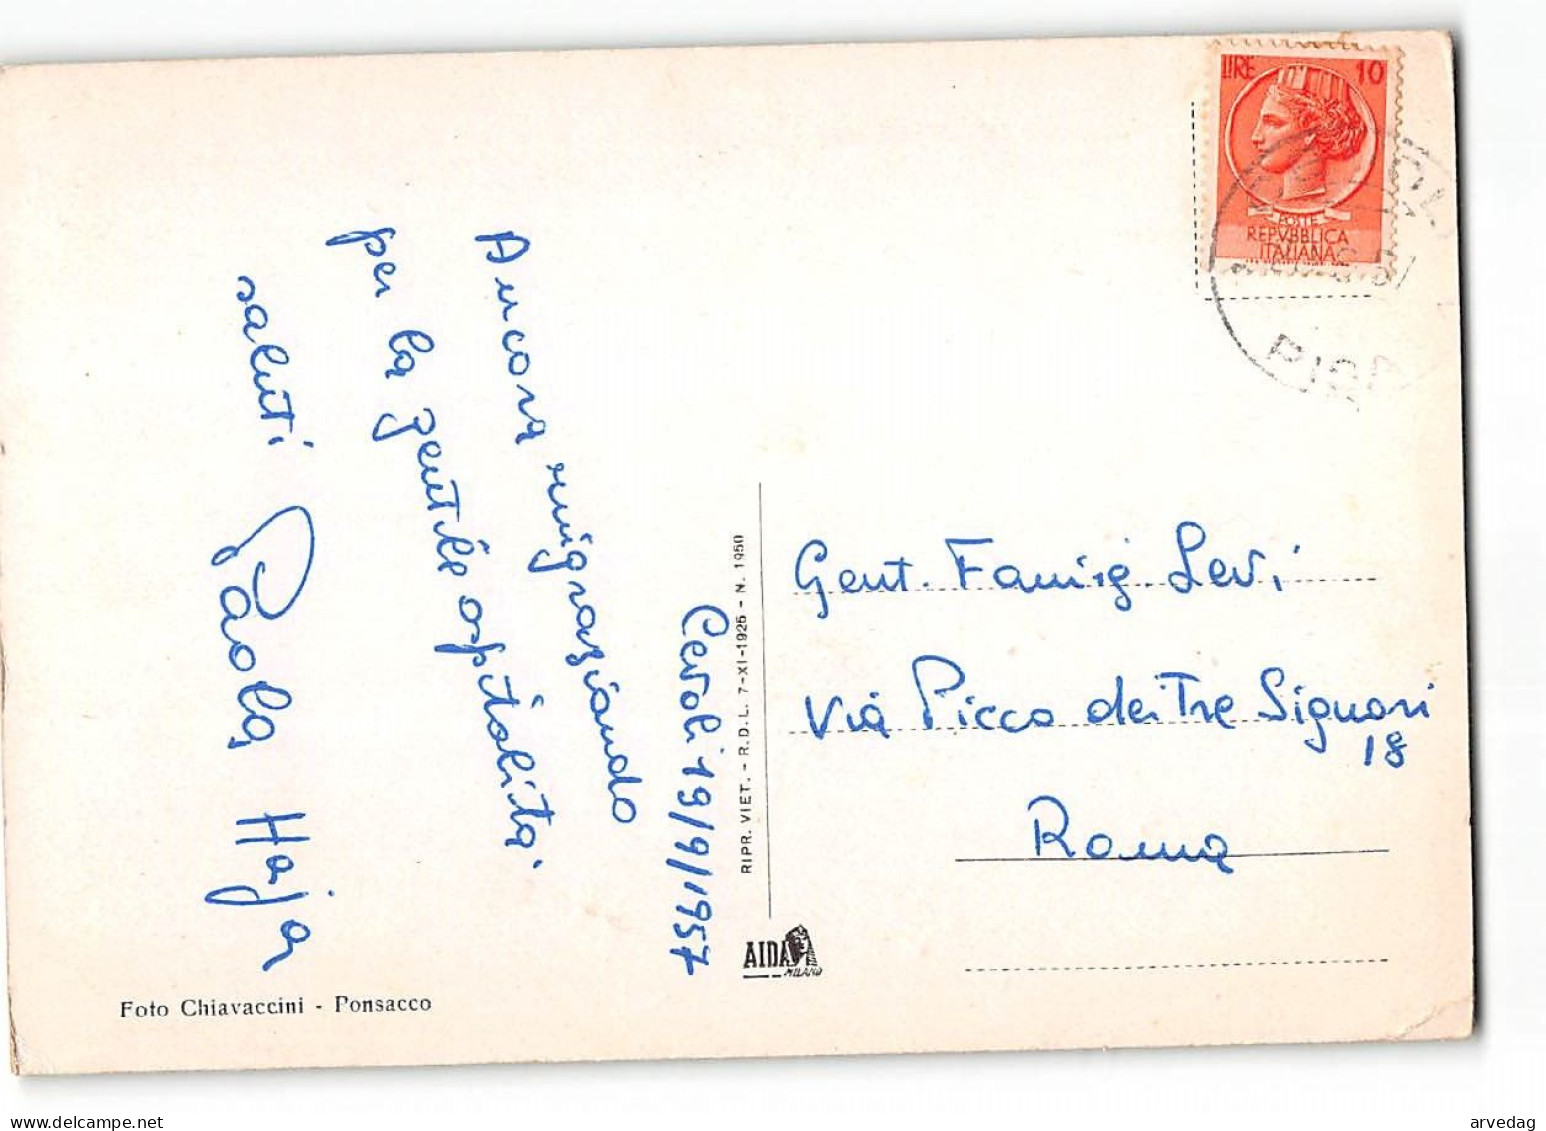 LIRE 10
POSTE
REPVBBLICA
ITALIANA
PISA
Cevoli 19/9/1957
Ancora ringraziando
per la gentile ospitalità
saluti
Paola Hajar
Foto Chiavaccini - Ponsacco
RIPR. VIET. - R.D.L. 7-XI-1925 - N. 1950
AIDA
MILANO
Gent. Famig. Levi
Via Picco dei Tre Signori
18
Roma
arvedag
www.delcampe.net